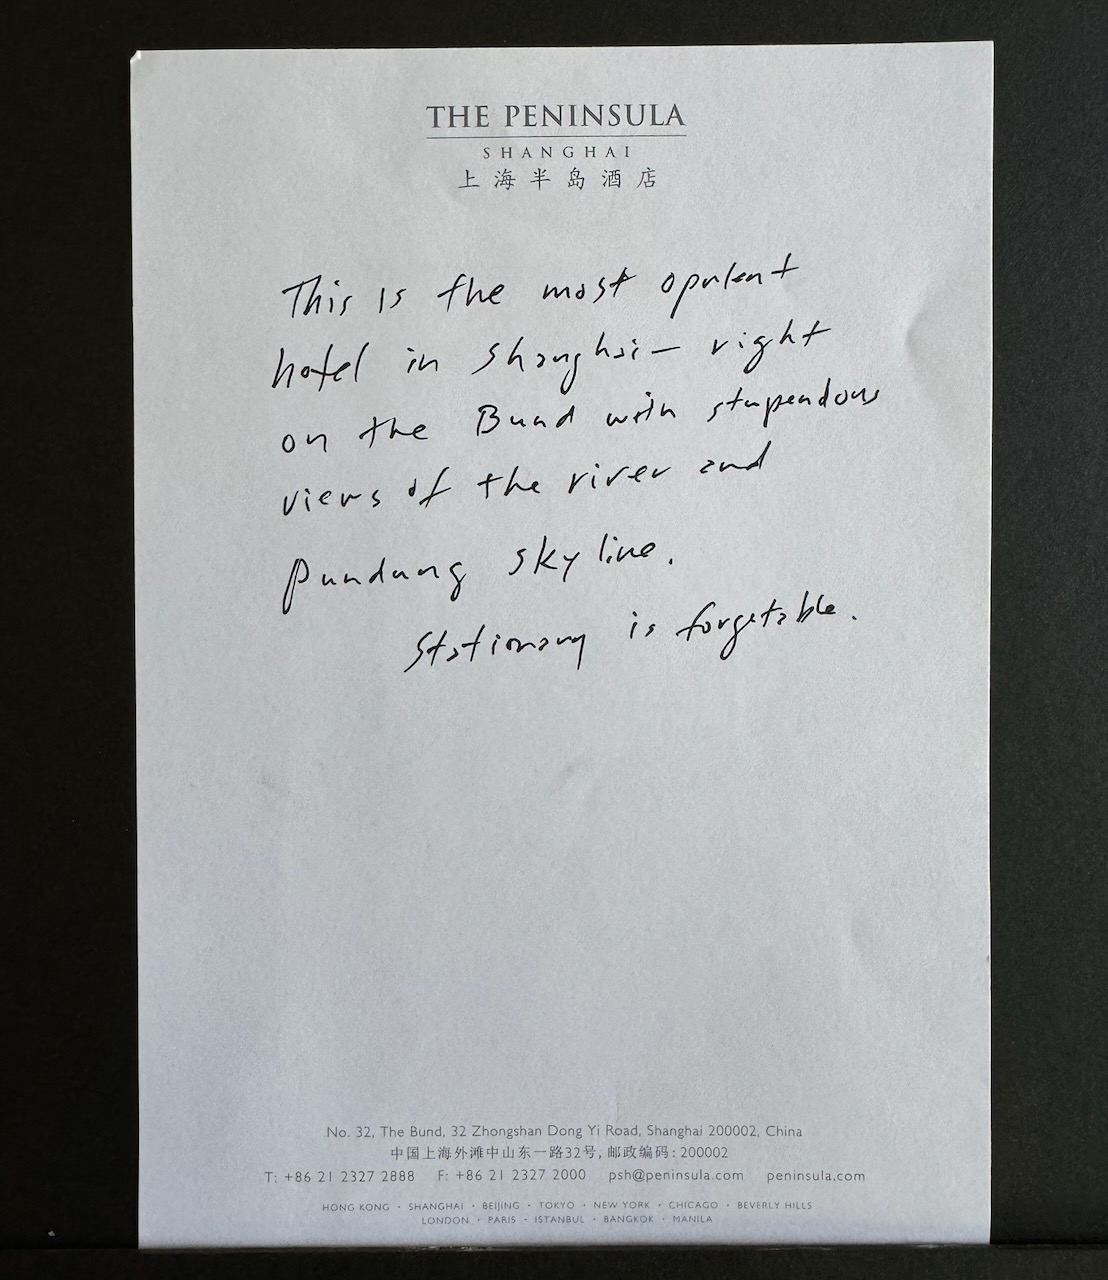 THE PENINSULA
SHANGHAI
上海半岛酒店
This is the most opulent
hotel in Shanghai — right
on the Bund with stupendous
views of the river and
Pundung skyline.
Stationary is forgetable.
No. 32, The Bund, 32 Zhongshan Dong Yi Road, Shanghai 200002, China
中国上海外滩中山东一路32号, 邮政编码: 200002
T: +86 21 2327 2888 F: +86 21 2327 2000 psh@peninsula.com peninsula.com
HONG KONG · SHANGHAI · BEIJING · TOKYO · NEW YORK · CHICAGO · BEVERLY HILLS
LONDON · PARIS · ISTANBUL · BANGKOK · MANILA